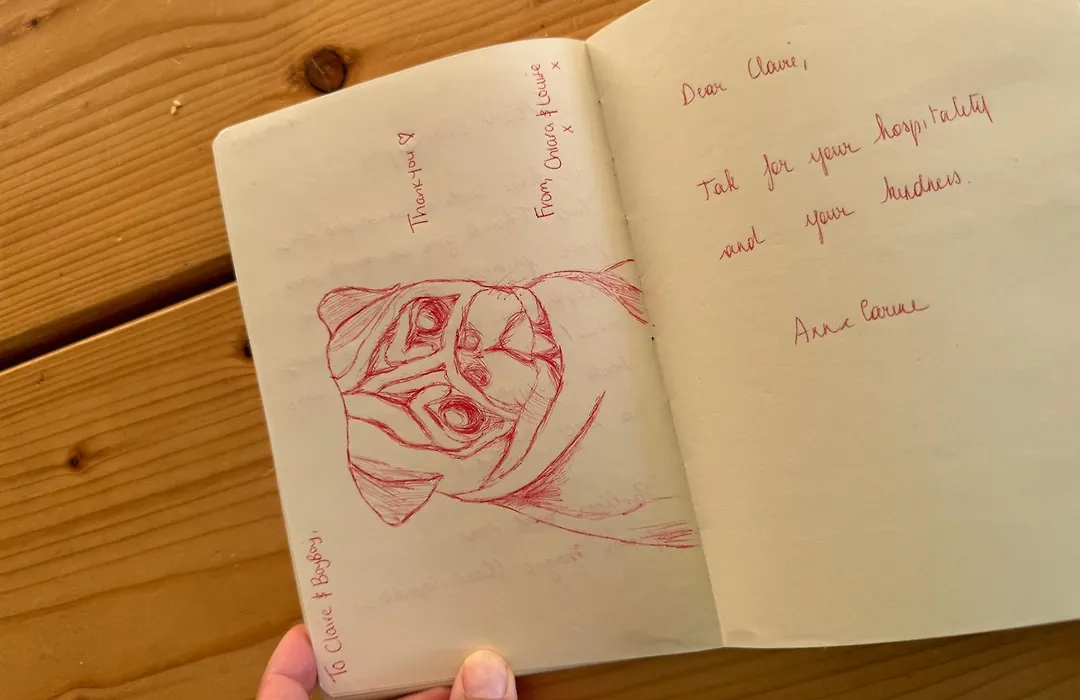 To Claire & BoyBoy,
Thank you ♡
From, Chiara & Louise
x x
Dear Claire,
Tak for your hospitality
and your kindness.
Anne Carine